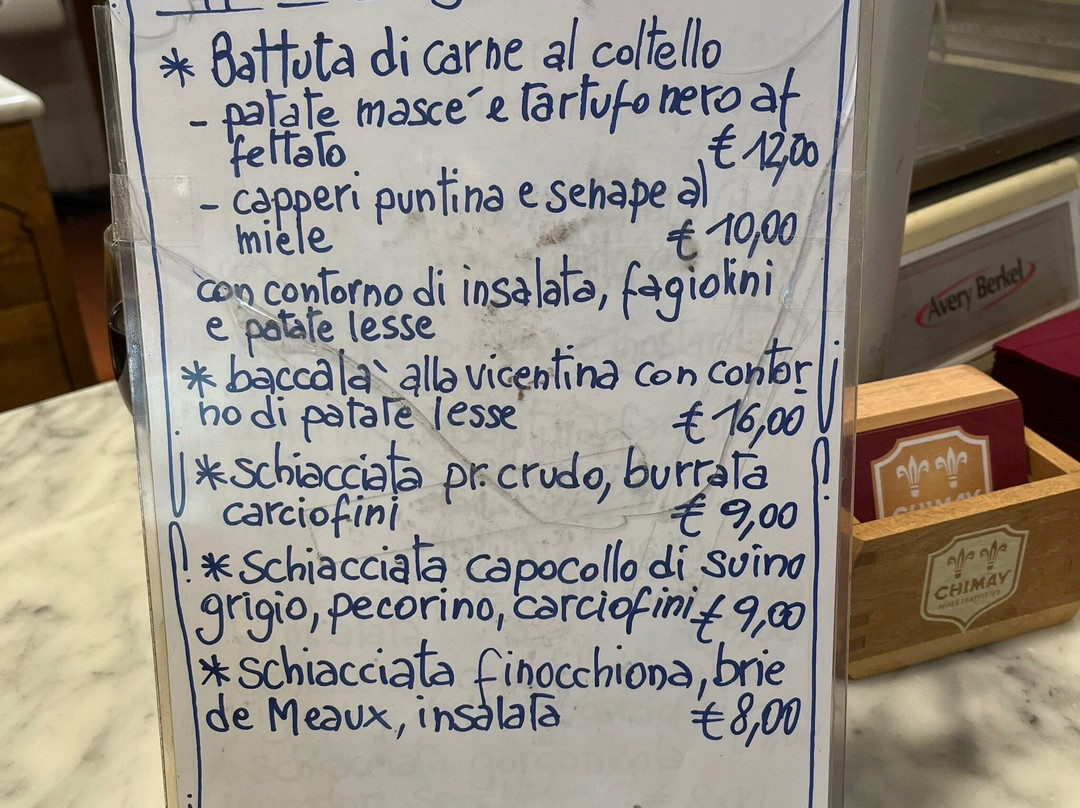 * Battuta di carne al coltello
- patate mascé e tartufo nero af
fettato € 12,00
- capperi puntina e senape al
miele € 10,00
con contorno di insalata, fagiolini
e patate lesse
* baccalà alla vicentina con contor
no di patate lesse € 16,00
* schiacciata pr. crudo, burrata
carciofini € 9,00
* schiacciata capocollo di suino
grigio, pecorino, carciofini € 9,00
* schiacciata finocchiona, brie
de Meaux, insalata € 8,00
Avery Berkel
CHIMAY
CHIMAY